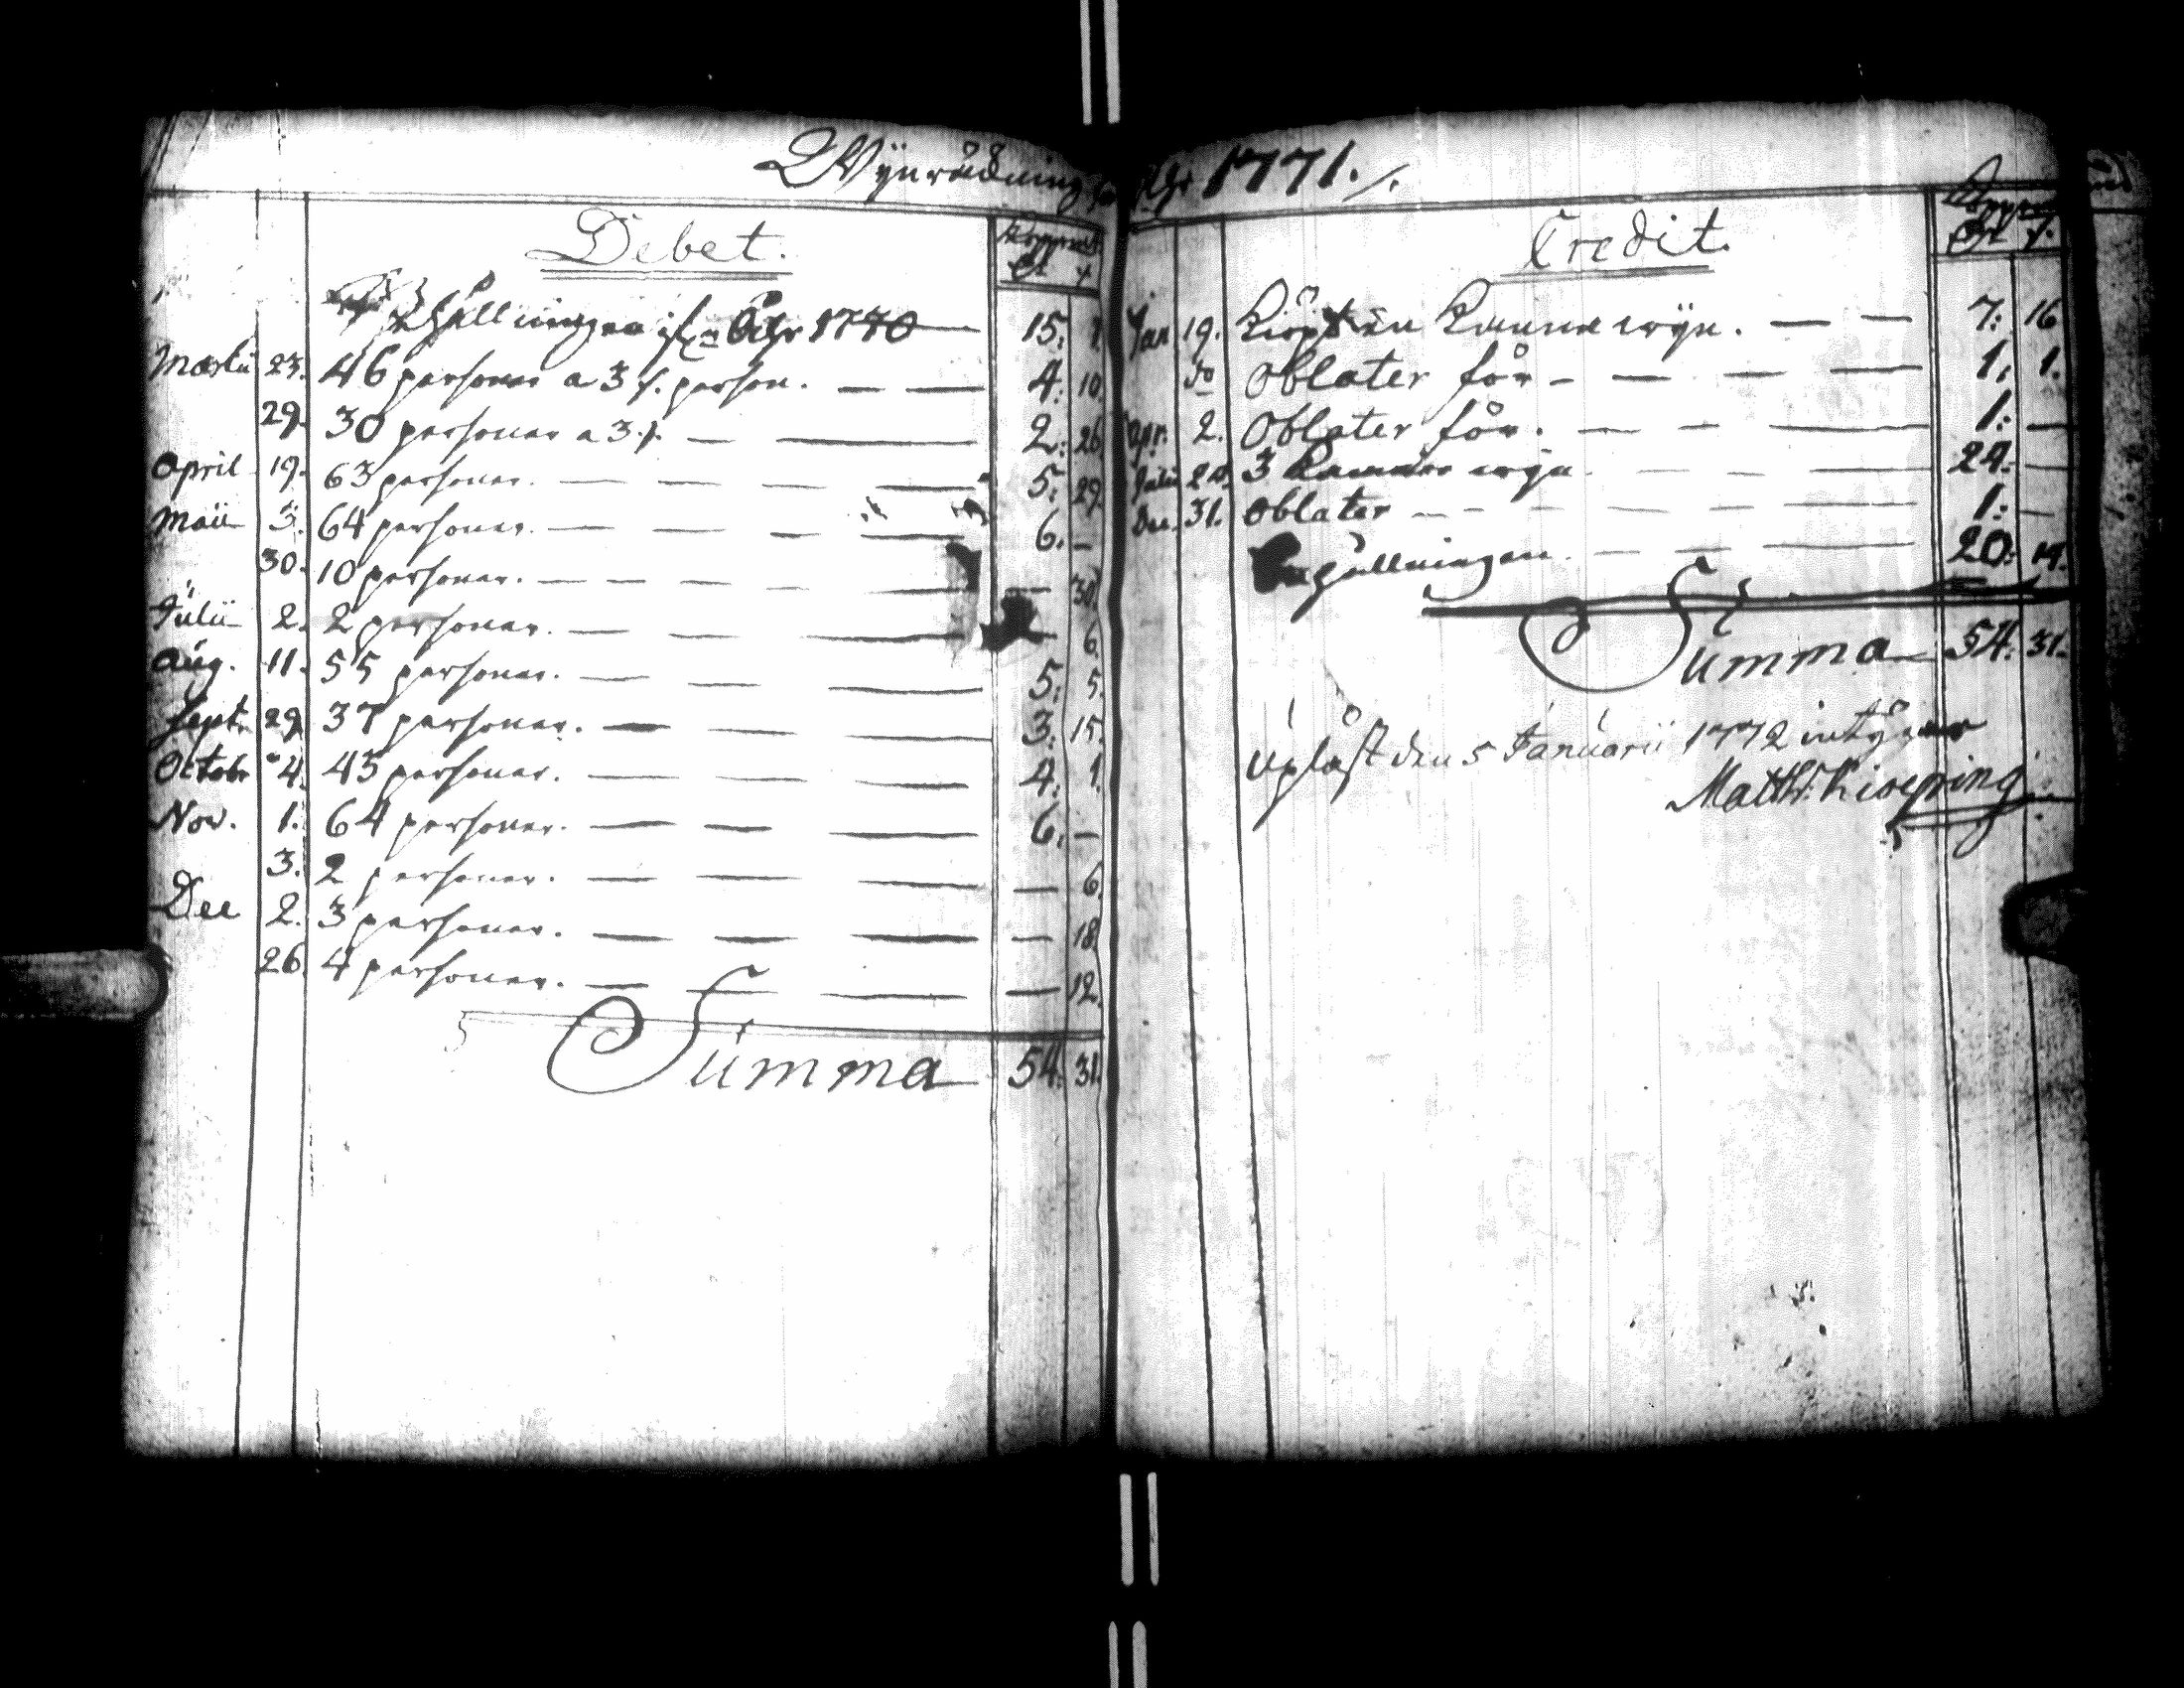 Wÿnrädning för Åhr 1771.
Debet.
Kopprmt
hållningen if. Åhr 1770 — 15: 1
Martii 23. 46 personer a 3 f. person. — — 4: 10
29. 30 personer a 3 f. — — 2: 26
April 19. 63 personer. — — — — 5: 29
Maii 3. 64 personer. — — — — 6. —
30. 10 personer. — — — — — 30.
Julii 2. 2 personer. — — — — — 6
Aug. 11. 55 personer. — — — 5: 5.
Sept. 29. 37 personer. — — — 3: 15.
Octobr 4. 43 personer. — — — 4: 1.
Nov. 1. 64 personer. — — — 6. —
3. 2 personer. — — — — 6
Dec 2. 3 personer. — — — — 18
26. 4 personer. — — — — 12.
Summa 54: 31.
Credit.
Jan 19. Kiöpt en Kanna wÿn. — — 7: 16
do Oblater för — — — — 1: 1.
Apr. 2. Oblater för. — — — — 1: —
Julii 20. 3 Kannor wÿn — — — 24: —
Dec. 31. Oblater — — — — — 1: —
hållningen. — — — 20: 14.
Summa 54: 31.
Upläst den 5 Januarii 1772 intÿgar
Matth: Kiöpping